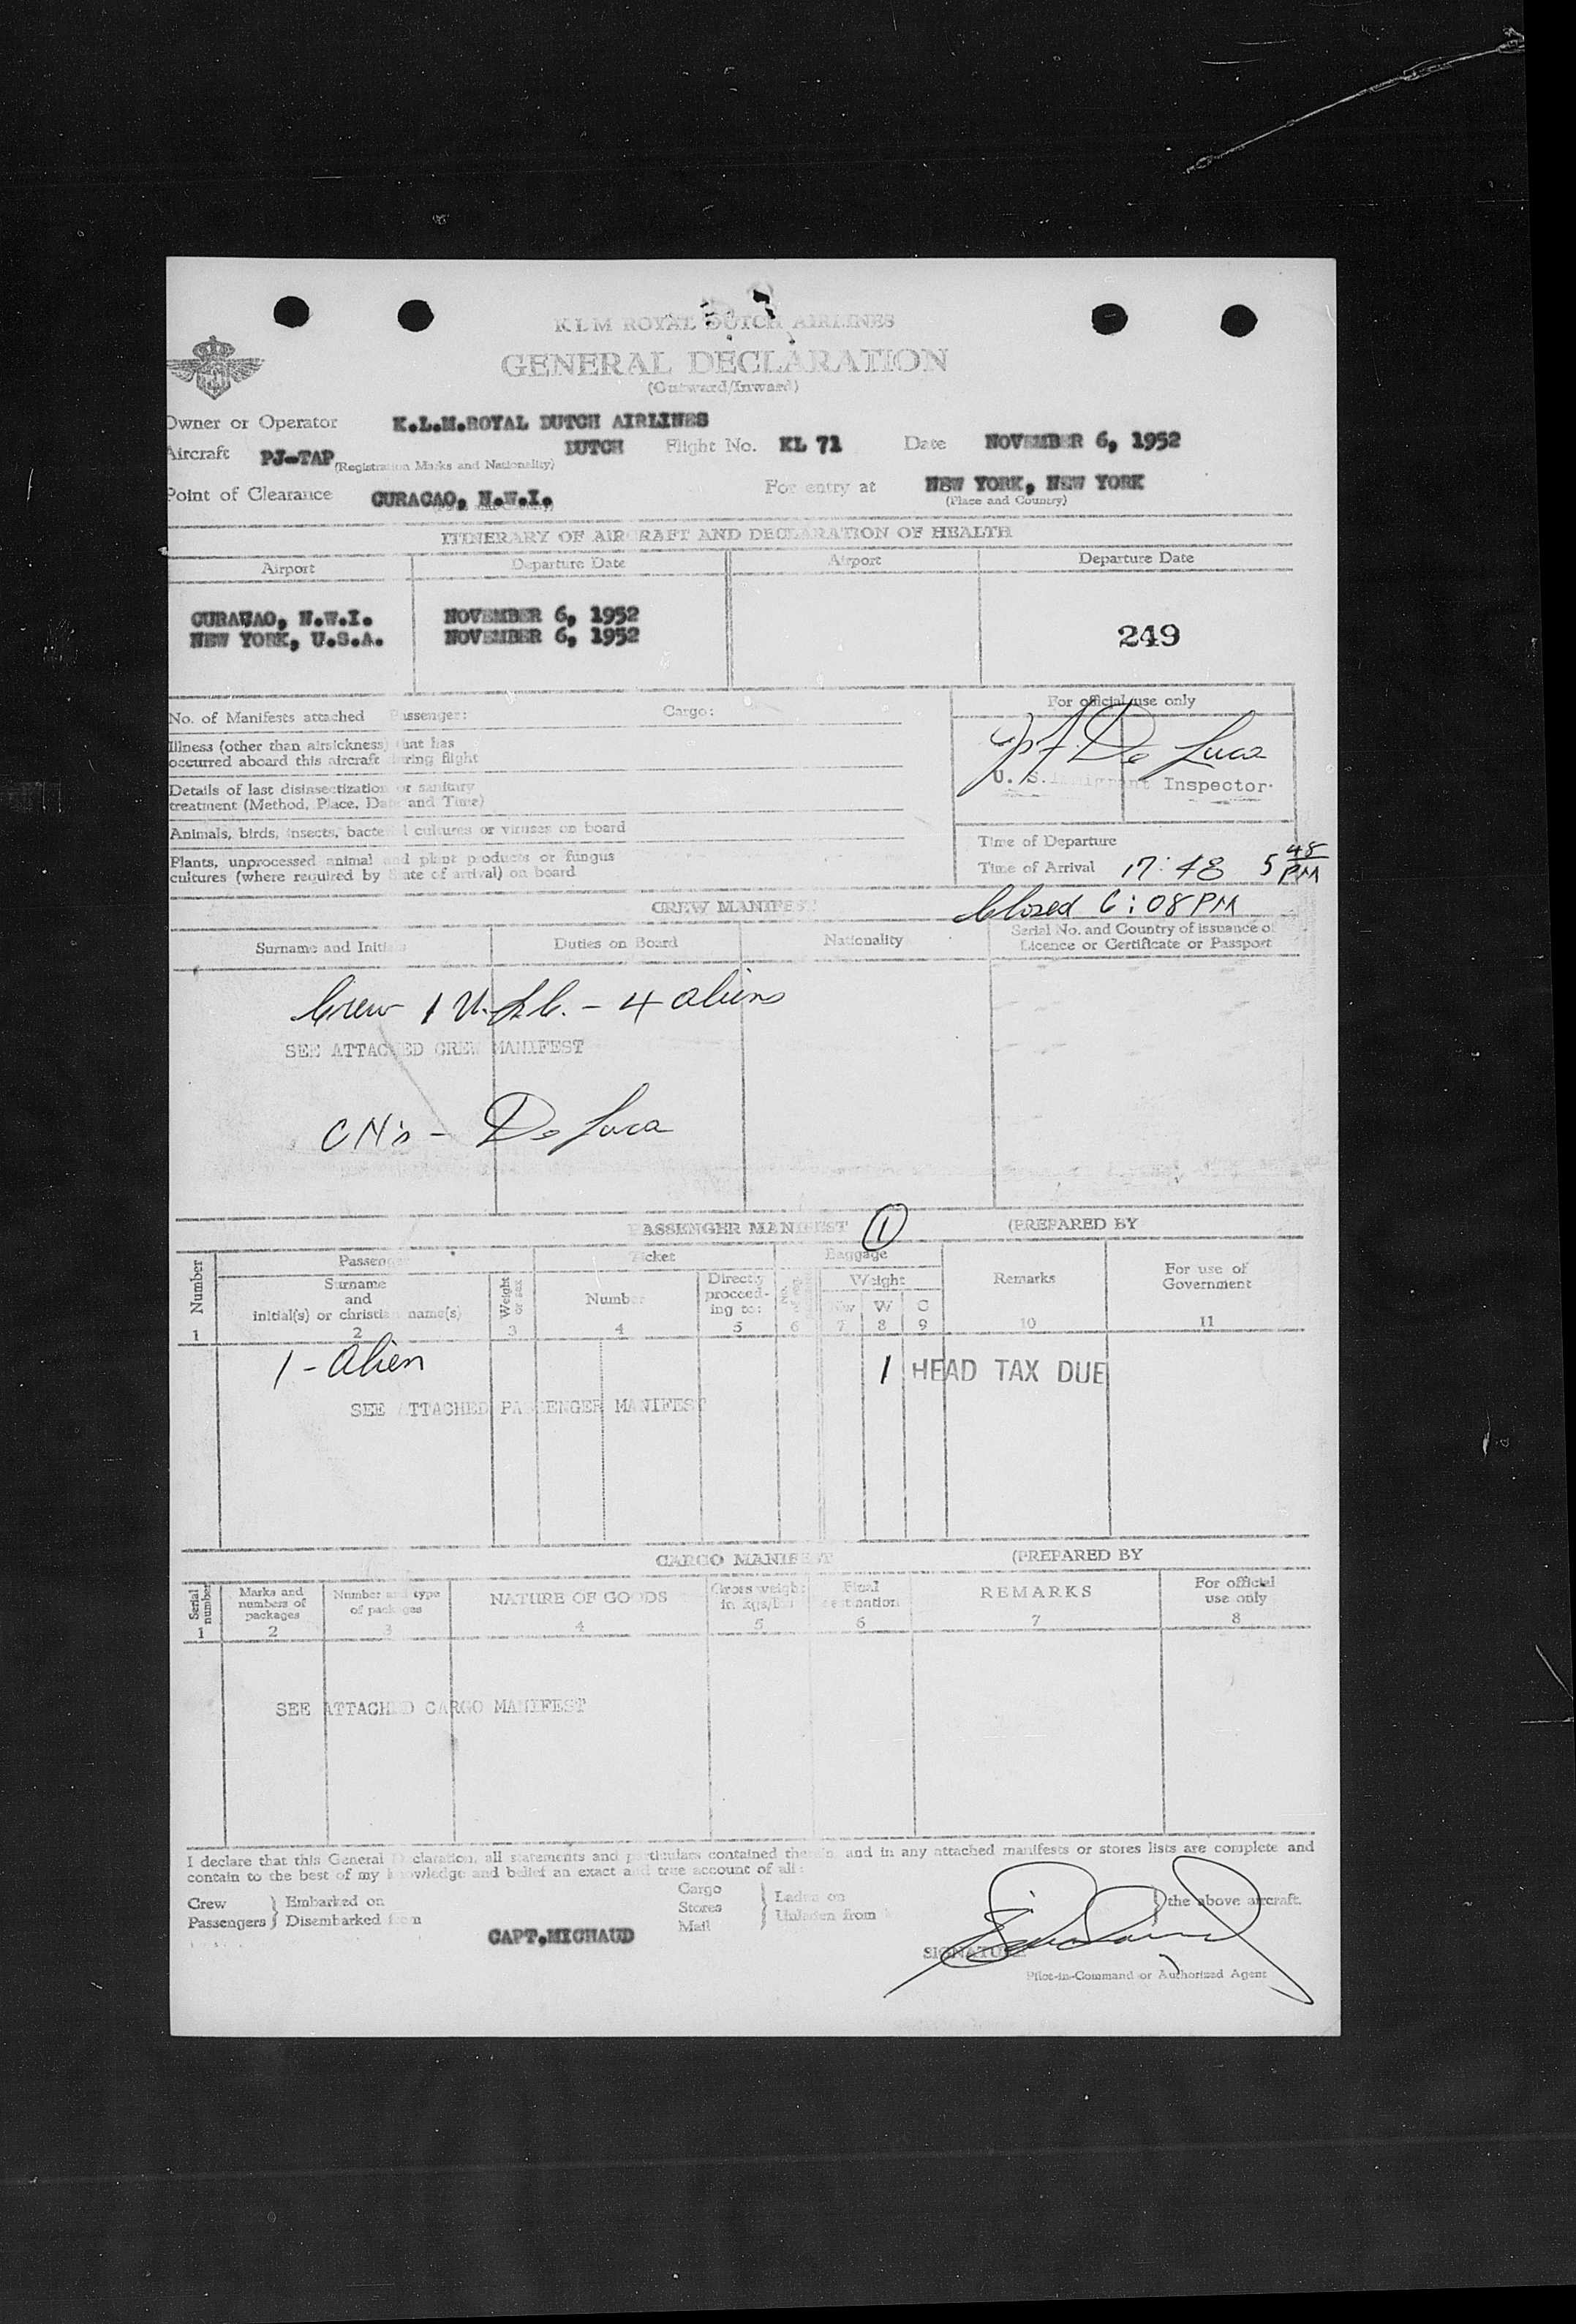 KLM ROYAL DUTCH AIRLINES
GENERAL DECLARATION
(Outward/Inward)
Owner or Operator K.L.M.ROYAL DUTCH AIRLINES
Aircraft PJ-TAP (Registration Marks and Nationality) DUTCH Flight No. KL 71 Date NOVEMBER 6, 1952
Point of Clearance CURACAO, N.W.I. For entry at NEW YORK, NEW YORK
(Place and Country)
ITINERARY OF AIRCRAFT AND DECLARATION OF HEALTH
Airport Departure Date Airport Departure Date
CURAÇAO, N.W.I. NOVEMBER 6, 1952
NEW YORK, U.S.A. NOVEMBER 6, 1952 249
No. of Manifests attached Passenger: Cargo: For official use only
Illness (other than airsickness) that has
occurred aboard this aircraft during flight
De Luca
U. S. Immigrant Inspector.
Details of last disinsectization or sanitary
treatment (Method, Place, Date and Time)
Animals, birds, insects, bacterial cultures or viruses on board
Time of Departure
Plants, unprocessed animal and plant products or fungus
cultures (where required by State of arrival) on board
Time of Arrival 17:48 5 48 PM
Closed 6:08 PM
CREW MANIFEST
Surname and Initials Duties on Board Nationality Serial No. and Country of issuance of
Licence or Certificate or Passport
Crew 1 U.S.C. - 4 aliens
SEE ATTACHED CREW MANIFEST
CN's - De Luca
PASSENGER MANIFEST 1 (PREPARED BY
Number Passenger Ticket Baggage Remarks For use of
Government
Surname
and
initial(s) or christian name(s)
Weight
or sex
Number
Directly
proceed-
ing to:
No.
Weight
W C
1 2 3 4 5 6 7 8 9 10 11
1 - Alien 1 HEAD TAX DUE
SEE ATTACHED PASSENGER MANIFEST
CARGO MANIFEST (PREPARED BY
Serial
number
Marks and
numbers of
packages
Number and type
of packages
NATURE OF GOODS
Gross weight
in kgs/Lbs
Final
destination
REMARKS
For official
use only
1 2 3 4 5 6 7 8
SEE ATTACHED CARGO MANIFEST
I declare that this General Declaration, all statements and particulars contained therein, and in any attached manifests or stores lists are complete and
contain to the best of my knowledge and belief an exact and true account of all:
Crew Embarked on Cargo Laden on the above aircraft.
Passengers Disembarked from Stores Unladen from
Mail
CAPT.MICHAUD
SIGNATURE
Pilot-in-Command or Authorized Agent